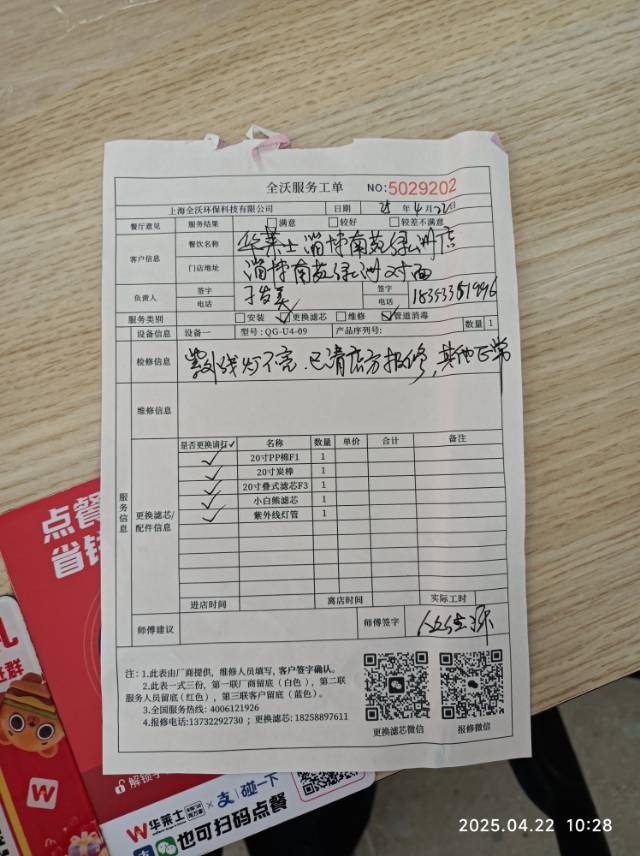 全沃服务工单 NO:5029202
上海全沃环保科技有限公司 日期 25 年 4 月 22 日
餐厅意见 服务结果 □满意 □较好 □较差不满意
客户信息 餐饮名称 华莱士淄博南苑绿洲店
门店地址 淄博南苑绿洲对面
负责人 签字 签字
电话 电话
服务类别 □安装 ☑更换滤芯 □维修 ☑管道消毒
设备信息 设备一 型号: QG-U4-09 产品序列号: 数量 1
检修信息 紫外线灯不亮.已请店方报修,其他正常
维修信息
服务信息 更换滤芯/配件信息 是否更换请打✓ 名称 数量 单价 合计 备注
✓ 20寸PP棉F1 1
✓ 20寸炭棒 1
✓ 20寸叠式滤芯F3 1
✓ 小白熊滤芯 1
✓ 紫外线灯管 1
进店时间 离店时间 实际工时
师傅建议 师傅签字
注: 1.此表由厂商提供, 维修人员填写, 客户签字确认。
2.此表一式三份, 第一联厂商留底 (白色), 第二联
服务人员留底 (红色), 第三联客户留底 (蓝色)。
3.全国服务热线: 4006121926
4.报修电话:13732292730 ; 更换滤芯: 18258897611
更换滤芯微信 报修微信
点餐
省钱
社群
解锁
W
W华莱士 × 支 碰一下
支 也可扫码点餐
2025.04.22 10:28